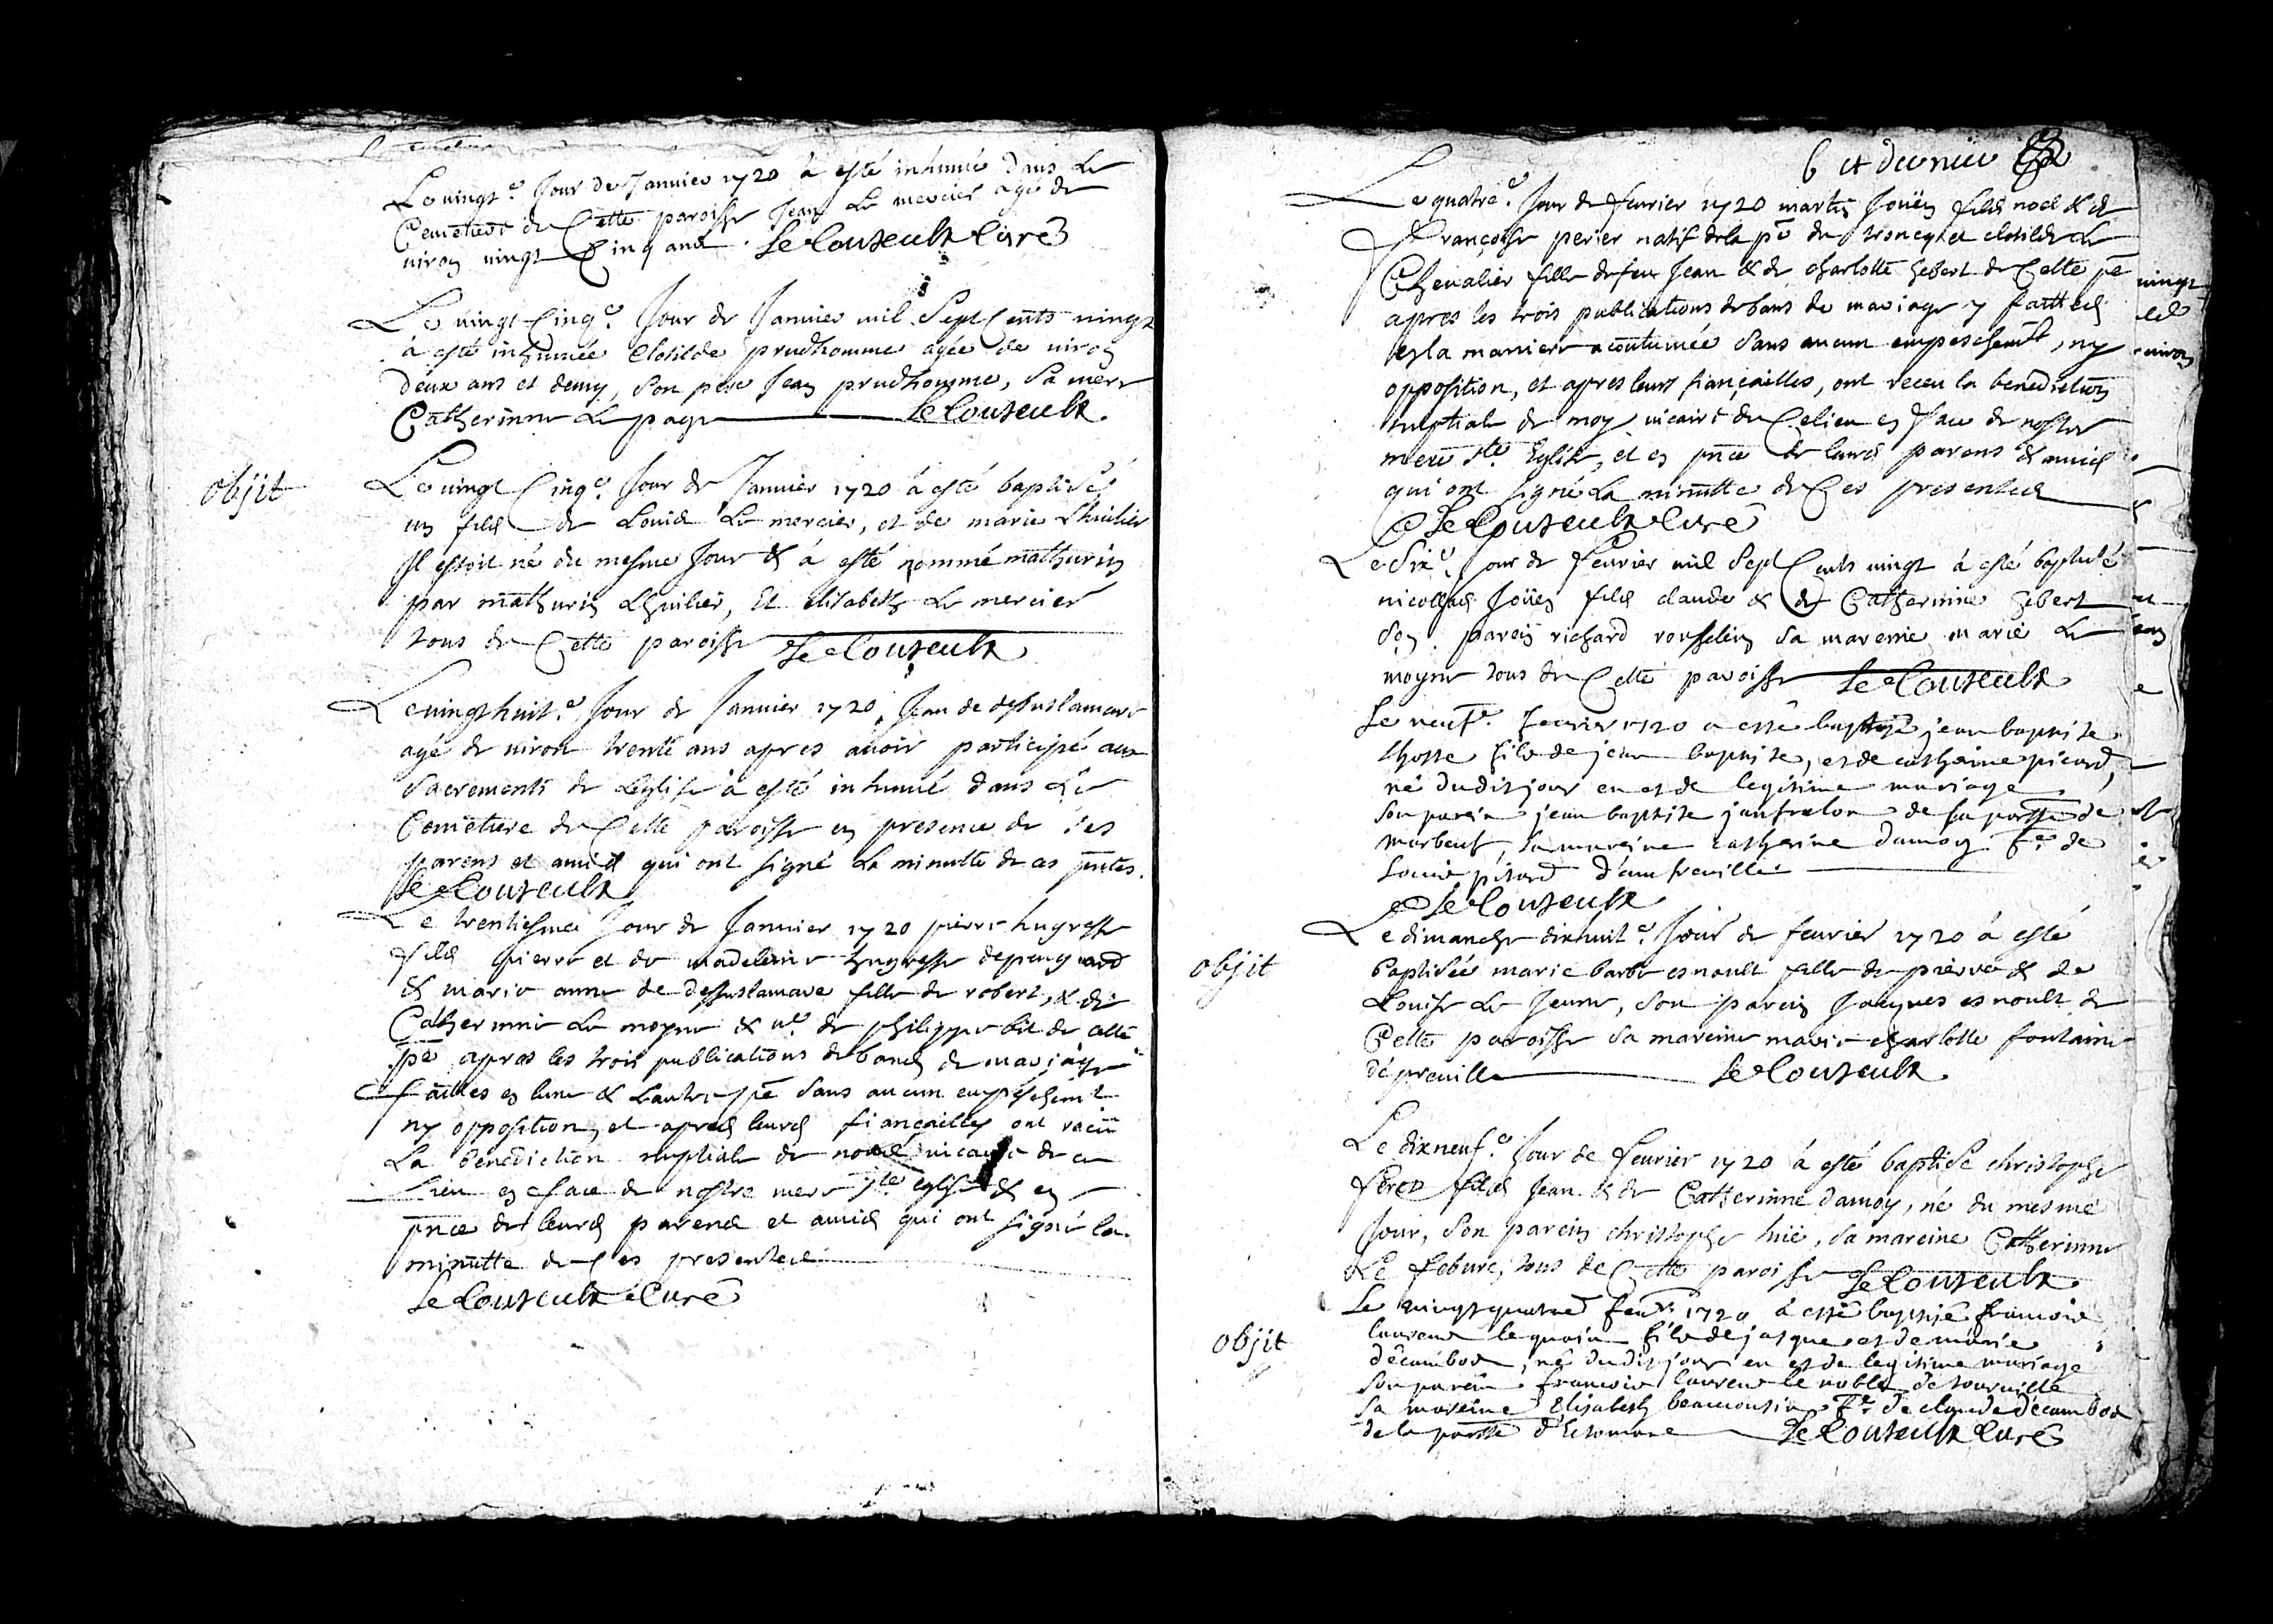 Le vingt.e Jour de Janvier 1720 à esté inhumé Dans Le
Cemetiere de Cette paroisse Jean Le mercier agé de
viron vingt Cinq ans. Le Couteulx Curé
Le vingt Cinq.e Jour de Janvier mil Sept Cents vingt
à esté inhumée Clotilde prudhomme agée de viron
deux ans et demy, Son pere Jean prudhomme, Sa mere
Catherinne Le page Le Couteulx.
objit
Le vingt Cinq.e Jour de Janvier 1720 à esté baptisé
un fils de Louis Le mercier, et de marie Lhuilier
Il estoit né du mesme Jour & à esté nommé mathurin
par mathurin Lhuilier, Et Elisabeth Le mercier
tous de Cette paroisse Le Couteulx
Le vingt huit.e Jour de Janvier 1720, Jean de dessuslamare
agé de viron trente ans apres avoir participé aux
Sacrements de L'eglise à esté inhumé dans Le
Cemetiere de Cette paroisse en presence de Ses
parens et amis qui ont signé La minutte de ces pntes.
Le Couteulx
Le trentiesme Jour de Janvier 1720 pierre hugresse
fils pierre et de madeleine hugresse
& marie anne de dessuslamare fille de robert, & de
Catherinne Le moyne & v.e de philippe de cette
pē apres les trois publications de bans de mariage
faittes en lune & Lautre pē Sans aucun empeschemt
ny opposition, et apres leurs fiançailles ont receu
La benediction nuptiale de nous vicaire de ce
Lieu en face de nostre mere ste eglise & en
pnce de leurs parens et amis qui ont signé la
minutte de Ces presentes
Le Couteulx Curé
6 et dernier
Le quatre.e Jour de fevrier 1720 martin Joüen fils noel & de
Françoise perier natif de la pē du troncq et clotilde Le
Chevalier fille de feu Jean & de charlotte hebert de Cette pē
apres les trois publications de bans de mariage y faittes
en la maniere acoutumée Sans aucun empeschemt, ny
opposition, et apres leurs fiançailles, ont receu la benediction
nuptiale de moy vicaire de Ce lieu en face de nostre
mere ste Eglise, et en pnce de leurs parens & amis
qui ont signé La minutte de Ces presentes
Le Couteulx Curé
Le Six.e Jour de Fevrier mil Sept Cents vingt à esté baptisé
nicollas Joüen fils claude & de Catherinne hebert
Son parein richard rousselin Sa mareine marie Le
moyne tous de Cette paroisse Le Couteulx
Le neuf.e fevrier 1720 a esté baptisé jean baptiste
fils de jean baptiste, et de catherine picard,
né dudit jour en et de legitime mariage
Son parein jean baptiste de la parsse de
marbeuf, sa mareine catherine damoy f.e de
Louis d'amfreville
Le Couteulx
objit
Le dimanche dixhuit.e Jour de fevrier 1720 à esté
baptisée marie barbe esnoult fille de pierre & de
Louise Le Jeune, Son parein Jacques esnoult de
Cette paroisse Sa mareine marie charlotte fontaine
d'épreville Le Couteulx.
Le dixneuf.e Jour de Fevrier 1720 à esté baptisé christophe
feret fils Jean & de Catherinne damoy, né du mesme
Jour, Son parein christophe hüe, Sa mareine Catherinne
Le febure, tous de Cette paroisse Le Couteulx.
objit
Le vingt quatre fevr. 1720 à esté baptisé francois
laurens le quoin fils de jasque et de marie
d'écambos, né dudit jour en et de legitime mariage
son parein francois laurens le noble de tourville
Sa mareine Elisabeth beaucousin f.e de claude d'écambos
de la parsse d'Ectomare Le Couteulx Curé